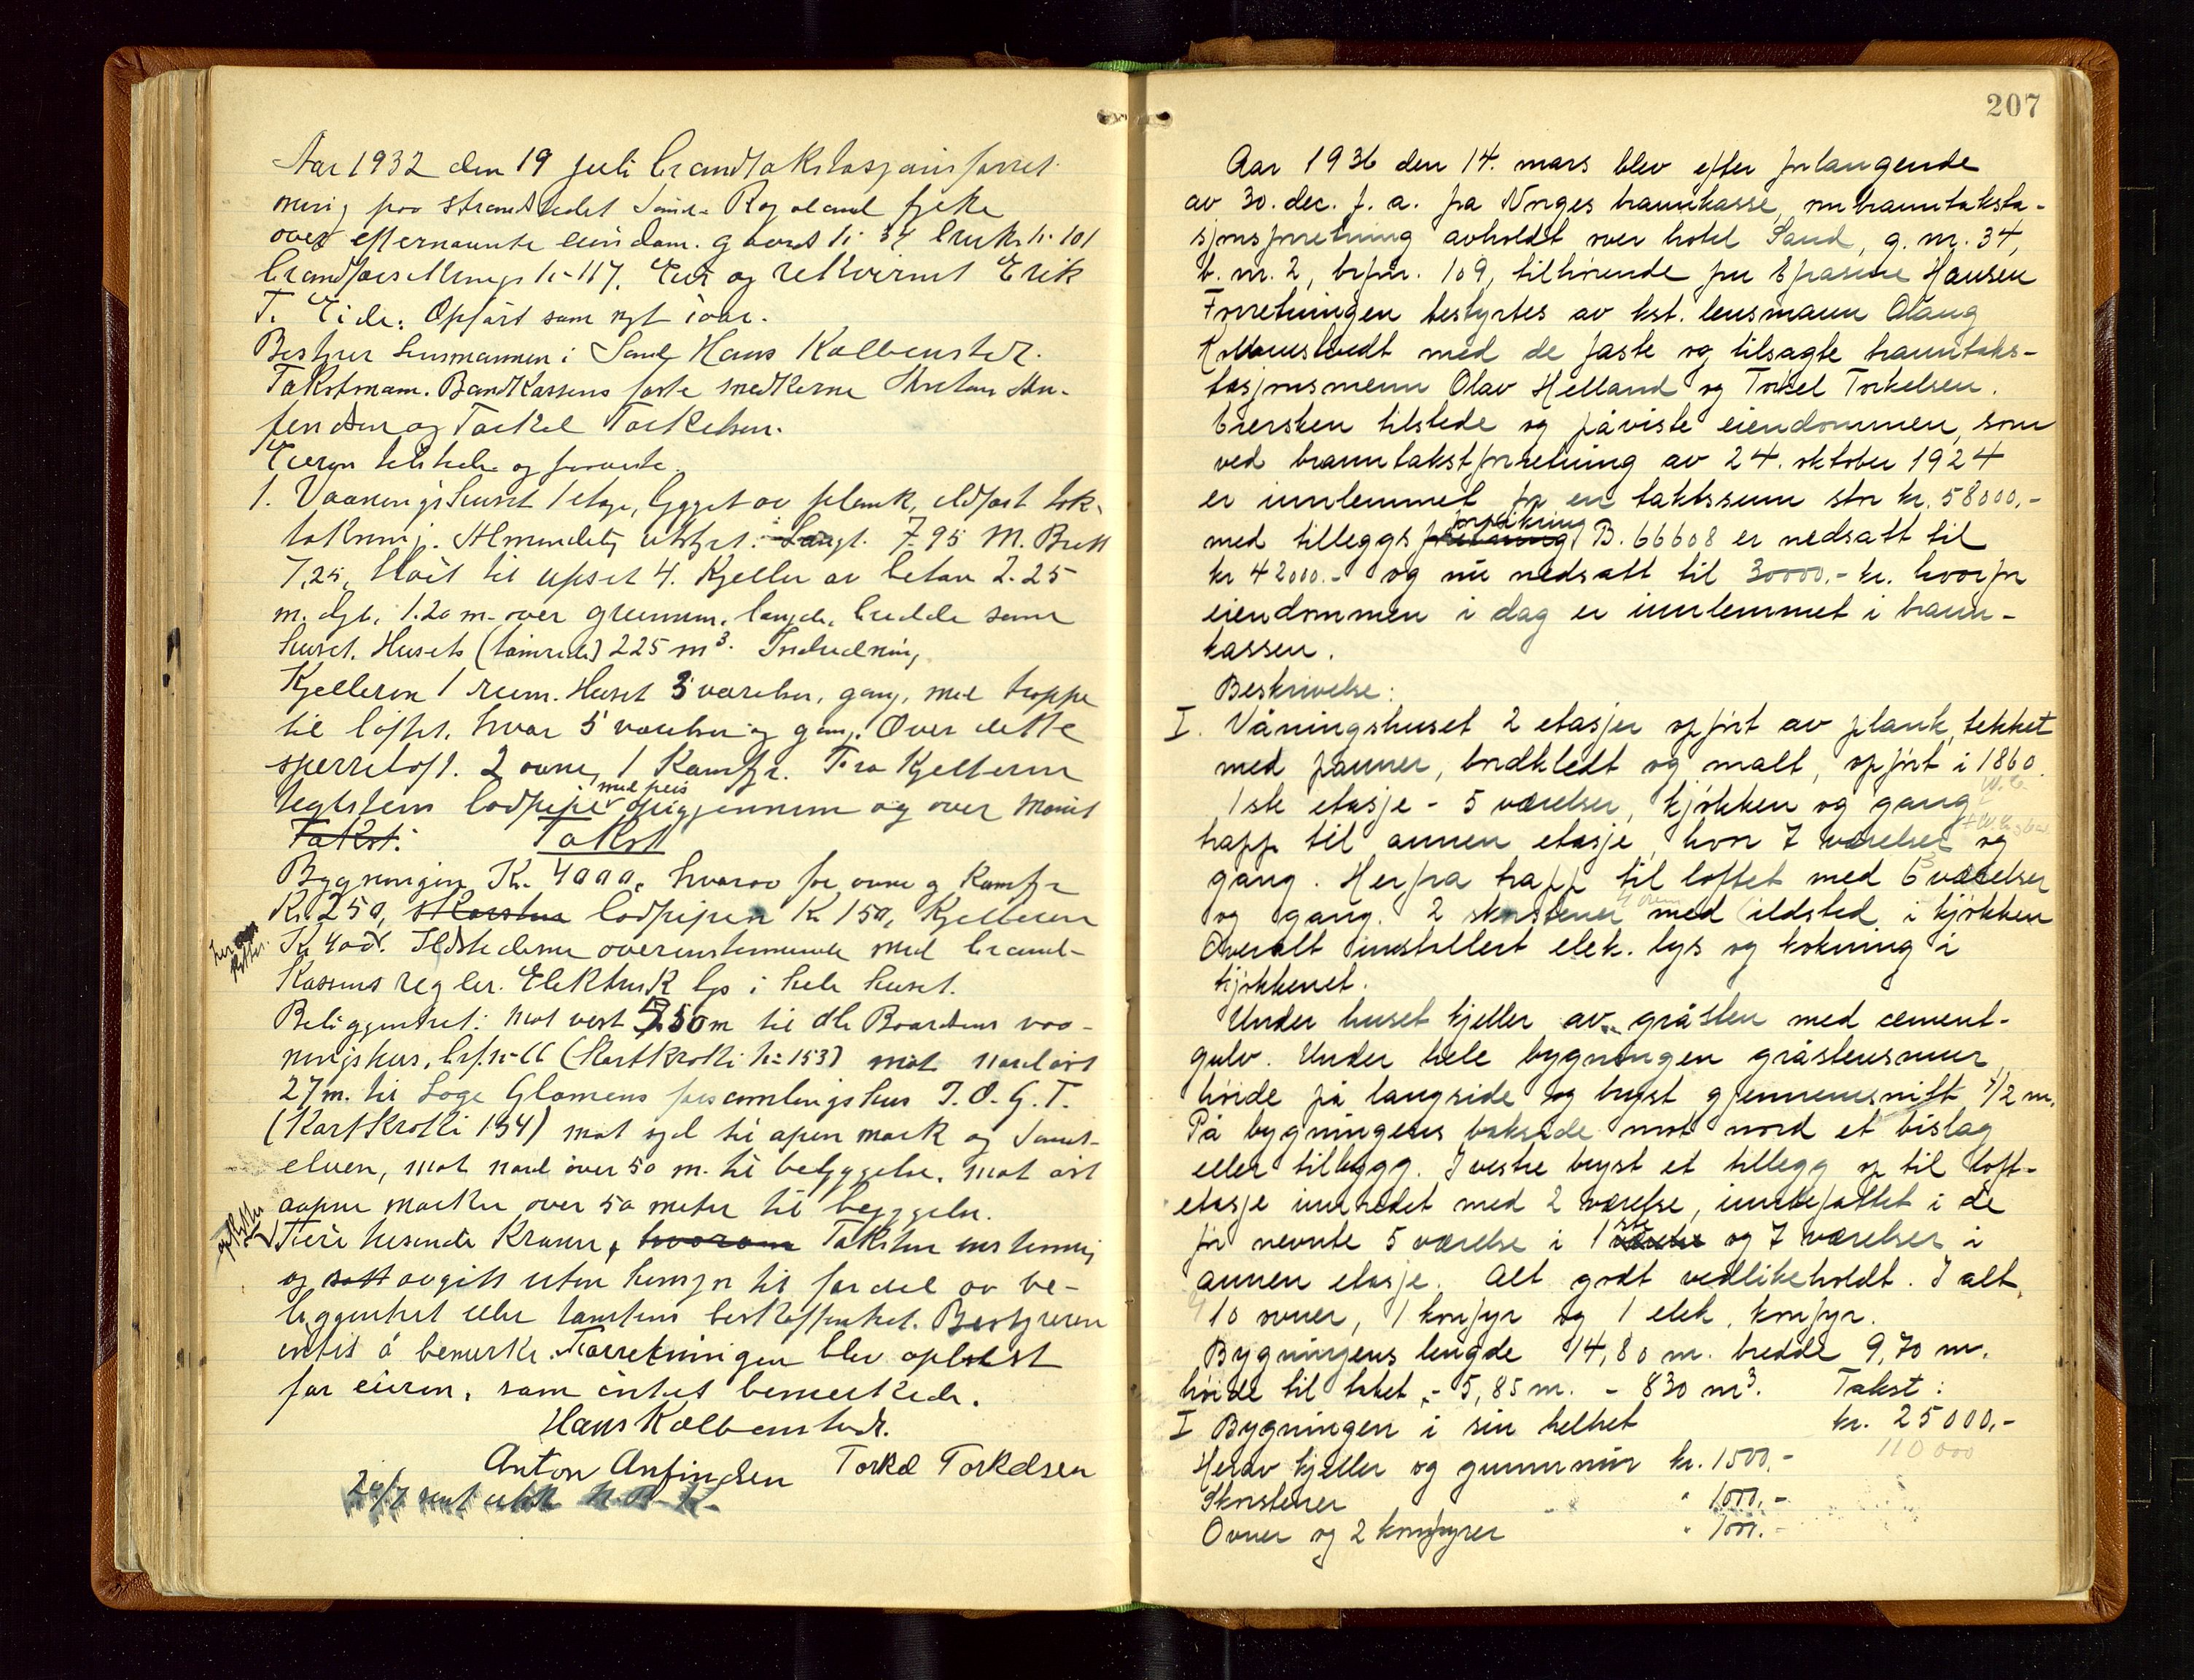 Aar 1932 den 19 juli brandtakstasjonsforret
ning paa strandstedet Sand. Rogaland fylke
over efternævnte eiendom. gaards nr 34 bruks nr. 101
brandforsikrings nr 117. Eier og rekvirent Erik
T. Eide. Opført som nyt iaar.
Bestyrer lensmannen i Sand Hans Kolbenstvedt.
Takstmænn. Brandkassens faste medlemmer Anton An-
fendsen og Torkel Torkelsen.
Eieren tilstede og paaviste.
1. Vaaningshuset 1 etage, bygget av plank, ildfast tak-
tækning. Almindelig utstyrt. Langt. 7.95 M. Bredt
7,25, Høit til upset 4. Kjeller av betong 2.25
m. dyb, 1.20 m. over grunnen, længde, bredde som
huset. Husets (tømrede) 225 m³. Indredning
Kjelleren 1 rum. Huset 3 værelser, gang, med trappe
til loftet, hvor 5 værelser og gang. Over dette
sperreloft. 2 ovne, 1 Komfyr. Fra Kjelleren
med peis
teglstens lodpipe opigjennem og over mønet
Takst: Takst
Bygningen Kr. 4000, hvorav for ovne og Komfyr
Kr 250, skorsten lodpipen Kr 150, Kjelleren
Kr 400. Ildstederne overensstemmende med brand-
kassens regler. Elektrisk lys i hele huset.
Beliggenhet: mot vest 5.50 m til Ole Baardsens vaa-
ningshus, brf.nr 66 (Kartkrokki nr 153) mot nordøst
27 m. til Loge Glomens forsamlingshus I.O.G.T.
(Kartkrokki 154) mot syd til åpen mark og Sands-
elven, mot nord over 50 m. til bebyggelse. mot øst
aapne marker over 50 meter til bebyggelse.
hvorom Taksten enstemmig
og avgitt uten hensyn til fordel av be-
liggenhet eller tomtens beskaffenhet. Bestyreren
intet å bemerke. Forretningen blev oplest
for eieren, som intet bemerkede.
Hans Kolbenstvedt.
Anton Anfindsen Torkel Torkelsen
20/7 sent utskr N.B.K.
207
Aar 1936 den 14. mars blev efter forlangende
av 30. dec. f. a. fra Norges brannkasse, en branntaksta-
sjonsforretning avholdt over hotel Sand, g. nr. 34,
b. nr. 2, brfnr. 109, tilhørende fru Efrasine Hansen
Forretningen bestyrtes av kst. lensmann Olaug
Kolbenstvedt med de faste og tilsagte branntaks-
tasjonsmenn Olav Helland og Torkel Torkelsen.
Eiersken tilstede og påviste eiendommen, som
ved branntakstforretning av 24. oktober 1924
er innlemmet for en takstsum stor kr. 58000,-
forsikring
med tilleggs forretning B. 66608 er nedsatt til
kr 42000.- og nu nedsatt til 30000.- kr. hvorfor
eiendommen i dag er innlemmet i brann-
kassen.
Beskrivelse:
I. Våningshuset 2 etasjer opført av plank, tekket
med panner, bordkledt og malt, opført i 1860.
W.C.
1ste etasje - 5 værelser, kjøkken og gang
trapp til annen etasje, hvor 7 værelser og
gang. Herfra trapp til loftet med 6 værelser
og gang. 2 skorstener med ildsted i kjøkken
Overalt installert elek. lys og kokning i
kjøkkenet.
Under huset kjeller av gråsten med cement-
gulv. Under hele bygningen gråstensmur
høide på langside og bryst gjennemsnitt 1/2 m.
På bygningens bakside mot nord et bislag
eller tilbygg. I vestre bryst et tillegg op til loft-
etasje innredet med 2 værelse, innbefattet i de
før nevnte 5 værelse i 1ste værelse og 7 værelser i
annen etasje. Alt godt vedlikeholdt. I alt
10 ovner, 1 komfyr og 1 elek. komfyr.
Bygningens lengde 14,80 m. bredde 9,70 m.
høide til taket - 5,85 m. - 830 m³. Takst:
I Bygningen i sin helhet kr. 25000,-
110 000
Herav kjeller og grunnmur kr. 1500,-
Skorstener " 1000.-
Ovner og 2 komfyrer " 1000.-